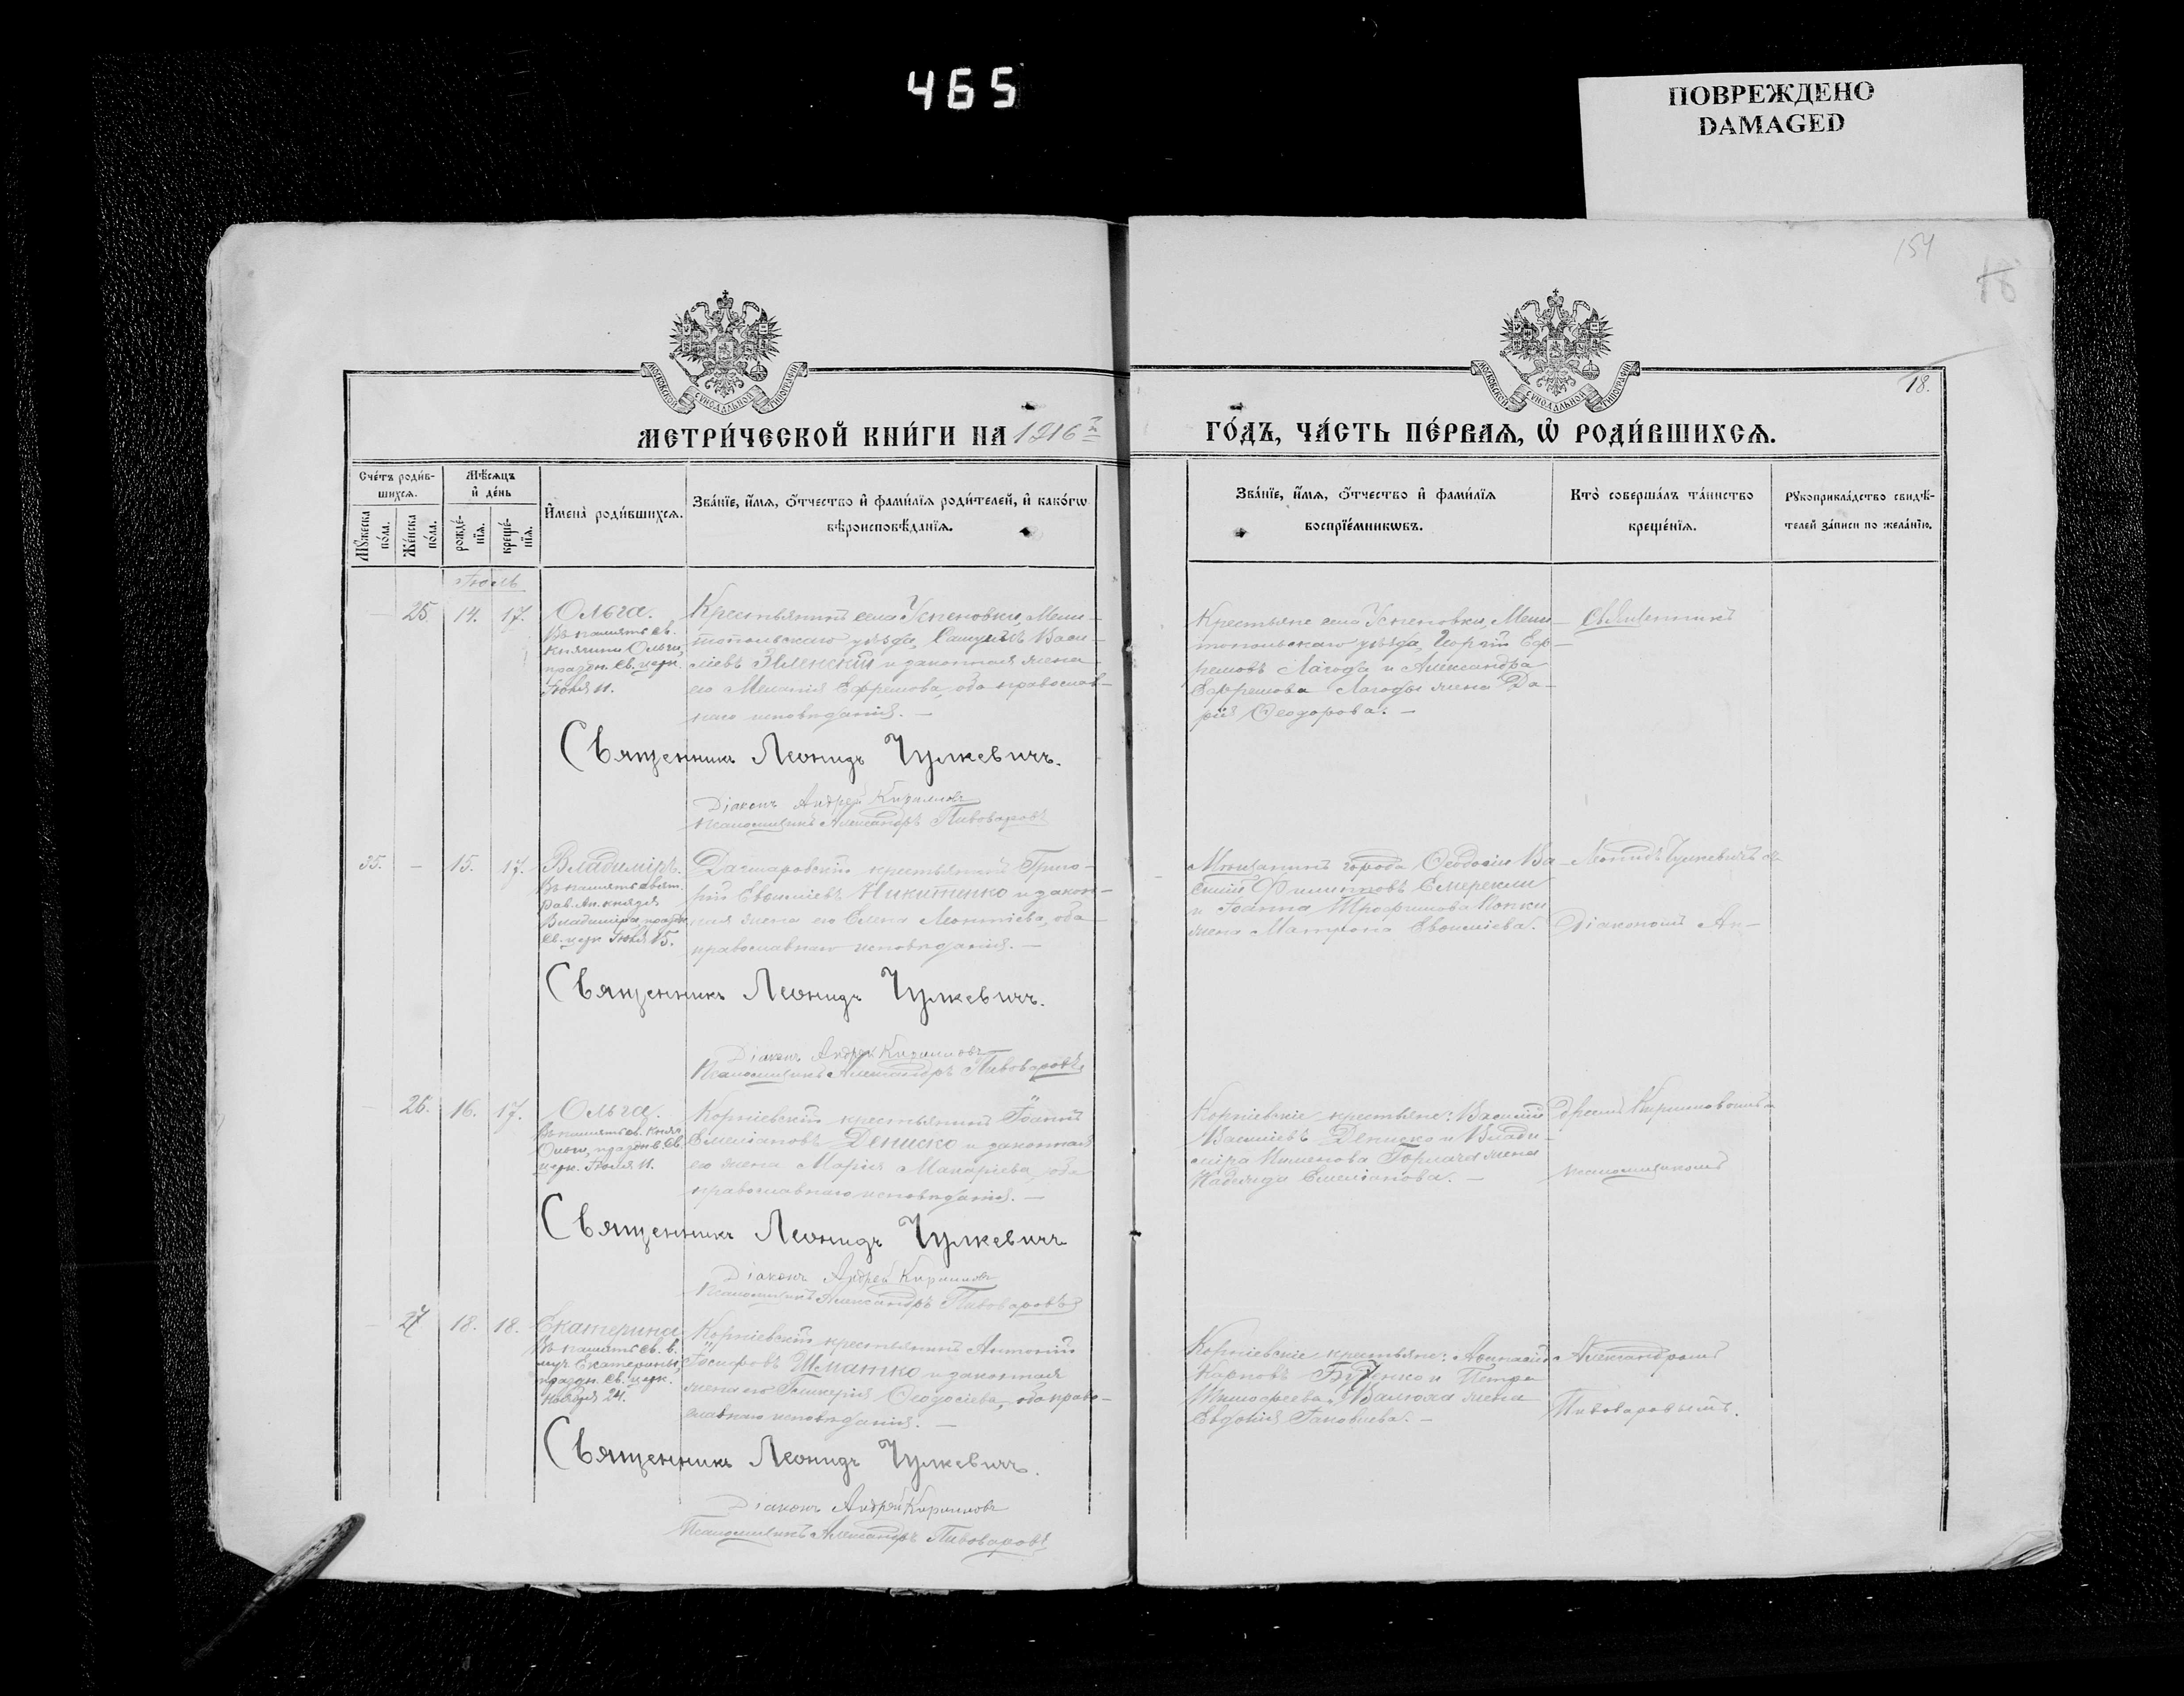 465
ПОВРЕЖДЕНО
DAMAGED
154
18
18.
МОСКОВСКОЙ СУНОДАЛЬНОЙ ТИПОГРАФІИ
МОСКОВСКОЙ СУНОДАЛЬНОЙ ТИПОГРАФІИ
МЕТРИ́ЧЕСКОЙ КНИ́ГИ НА 1916 й
ГО́ДЪ, ЧА́СТЬ ПЕ́РВАѦ, Ѡ҆ РОДИ́ВШИХСѦ.
Сче́тъ роди́в-
шихсѧ.
Мꙋ́жеска по́ла.
Же́нска по́ла.
Мѣ́сѧцъ
и҆ де́нь
рожде́-
нїѧ.
креще́-
нїѧ.
И҆мена̀ роди́вшихсѧ.
Зва́нїе, и҆́мѧ, ѻ҆́тчество и҆ фами́лїѧ роди́телей, и҆ како́гѡ
вѣроисповѣ́данїѧ.
Зва́нїе, и҆́мѧ, ѻ҆́тчество и҆ фами́лїѧ
воспрїе́мникѡвъ.
Кто̀ соверша́лъ та́инство
креще́нїѧ.
Рꙋкоприкла́дство свидѣ́-
телей за́писи по жела́нїю.
Іюль
— 25. 14. 17.
Ольга.
Въ память св.
княгини Ольги,
праздн. св. церк.
Іюля 11.
Крестьянинъ села Успеновки, Мели-
топольскаго уѣзда, Самуилъ Васи-
ліевъ Зѣленскій и законная жена
его Меланія Ефремова, оба православ-
наго исповѣданія. —
Священникъ Леонидъ Чулкевичъ.
Діаконъ Андрей Кирилловъ
Псаломщикъ Александръ Пивоваровъ
Крестьяне села Успеновки, Мели-
топольскаго уѣзда, Георгій Еф-
ремовъ Лагода и Александра
Ефремова Лагоды жена Да-
рія Ѳеодорова. —
Священникъ
35. — 15. 17.
Владиміръ.
Въ память святъ.
рав. Ап. князя
Владиміра, праздн.
св. церк. Іюля 15.
крестьянинъ Григо-
рій Евѳиміевъ Никитенко и закон-
ная жена его Елена Леонтіева, оба
православнаго исповѣданія. —
Священникъ Леонидъ Чулкевичъ.
Діаконъ Андрей Кирилловъ
Псаломщикъ Александръ Пивоваровъ
Мѣщанинъ города Ѳеодосіи Ва-
силій Филипповъ
и Іоанна Трофимова
жена Матрона Евѳиміева.
Леонидъ Чулкевичъ съ
Діакономъ Ан-
— 26. 16. 17.
Ольга.
Въ память св. княг.
Ольги, праздн. св.
церк. Іюля 11.
Корніевскій крестьянинъ Іоаннъ
Емеліановъ Дениско и законная
его жена Марія Макаріева, оба
православнаго исповѣданія. —
Священникъ Леонидъ Чулкевичъ
Діаконъ Андрей Кирилловъ
Псаломщикъ Александръ Пивоваровъ
Корніевскіе крестьяне: Василій
Василіевъ Дениско и Влади-
міра жена
Надежда Емеліанова. —
дреемъ Кирилловымъ и
псаломщикомъ
— 27 18. 18.
Екатерина
Въ память св. в.
муч. Екатерины,
праздн. св. церк.
Ноября 24.
Корніевскій крестьянинъ Антоній
Іосифовъ Шматко и законная
жена его Гликерія Ѳеодосіева, оба право-
славнаго исповѣданія. —
Священникъ Леонидъ Чулкевичъ.
Діаконъ Андрей Кирилловъ
Псаломщикъ Александръ Пивоваровъ
Корніевскіе крестьяне: Аѳанасій
Карповъ и Петра
Тимоѳеева жена
Евдокія Іаковлева. —
Александромъ
Пивоваровымъ.